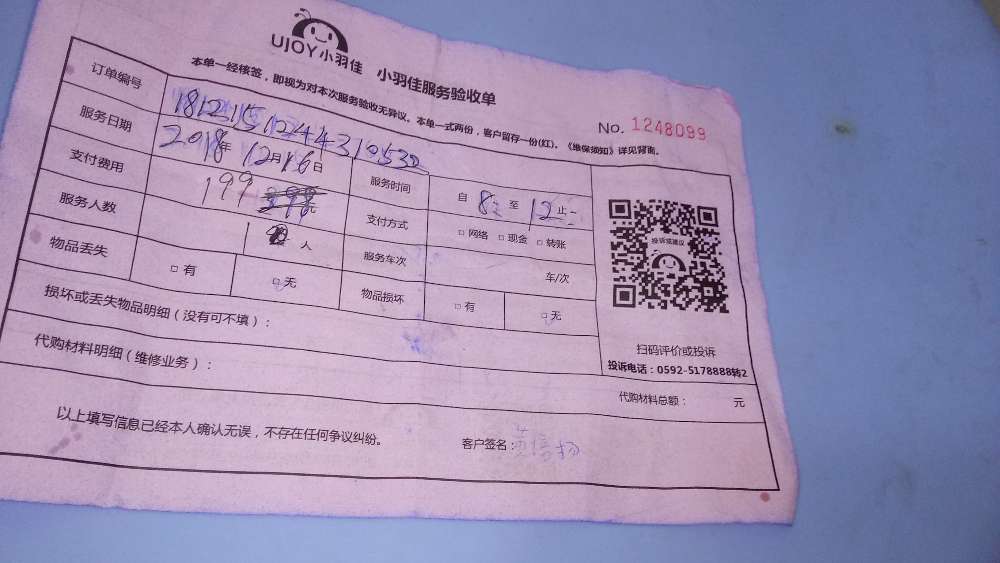 UJOY小羽佳 小羽佳服务验收单
本单一经核签，即视为对本次服务验收无异议。本单一式两份，客户留存一份(红)。《维保须知》详见背面。
No. 1248099
订单编号 181215124431053
服务日期 2018年 12月16日 服务时间 自 8 至 12 止
支付费用 199 元 支付方式 □ 网络 □ 现金 □ 转账
服务人数 人 服务车次 车/次
物品丢失 □ 有 □ 无 物品损坏 □ 有 □ 无
损坏或丢失物品明细（没有可不填）：
投诉或建议
扫码评价或投诉
投诉电话：0592-5178888转2
代购材料明细（维修业务）： 代购材料总额： 元
以上填写信息已经本人确认无误，不存在任何争议纠纷。 客户签名：